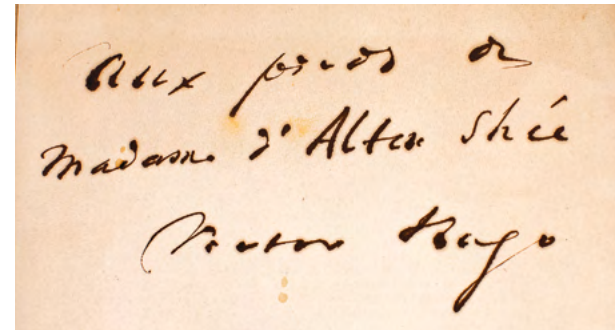 Aux pieds de
Madame d'Alton Shée
Victor Hugo